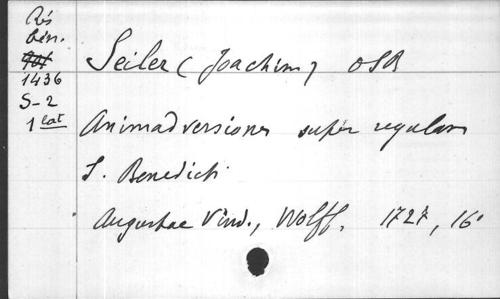 Rés
Bén.
1436
S-2
1 lat
Seiler (Joachim) OSB
Animadversiones super regulam
S. Benedicti
Augustae Vind., Wolff, 1727, 16°